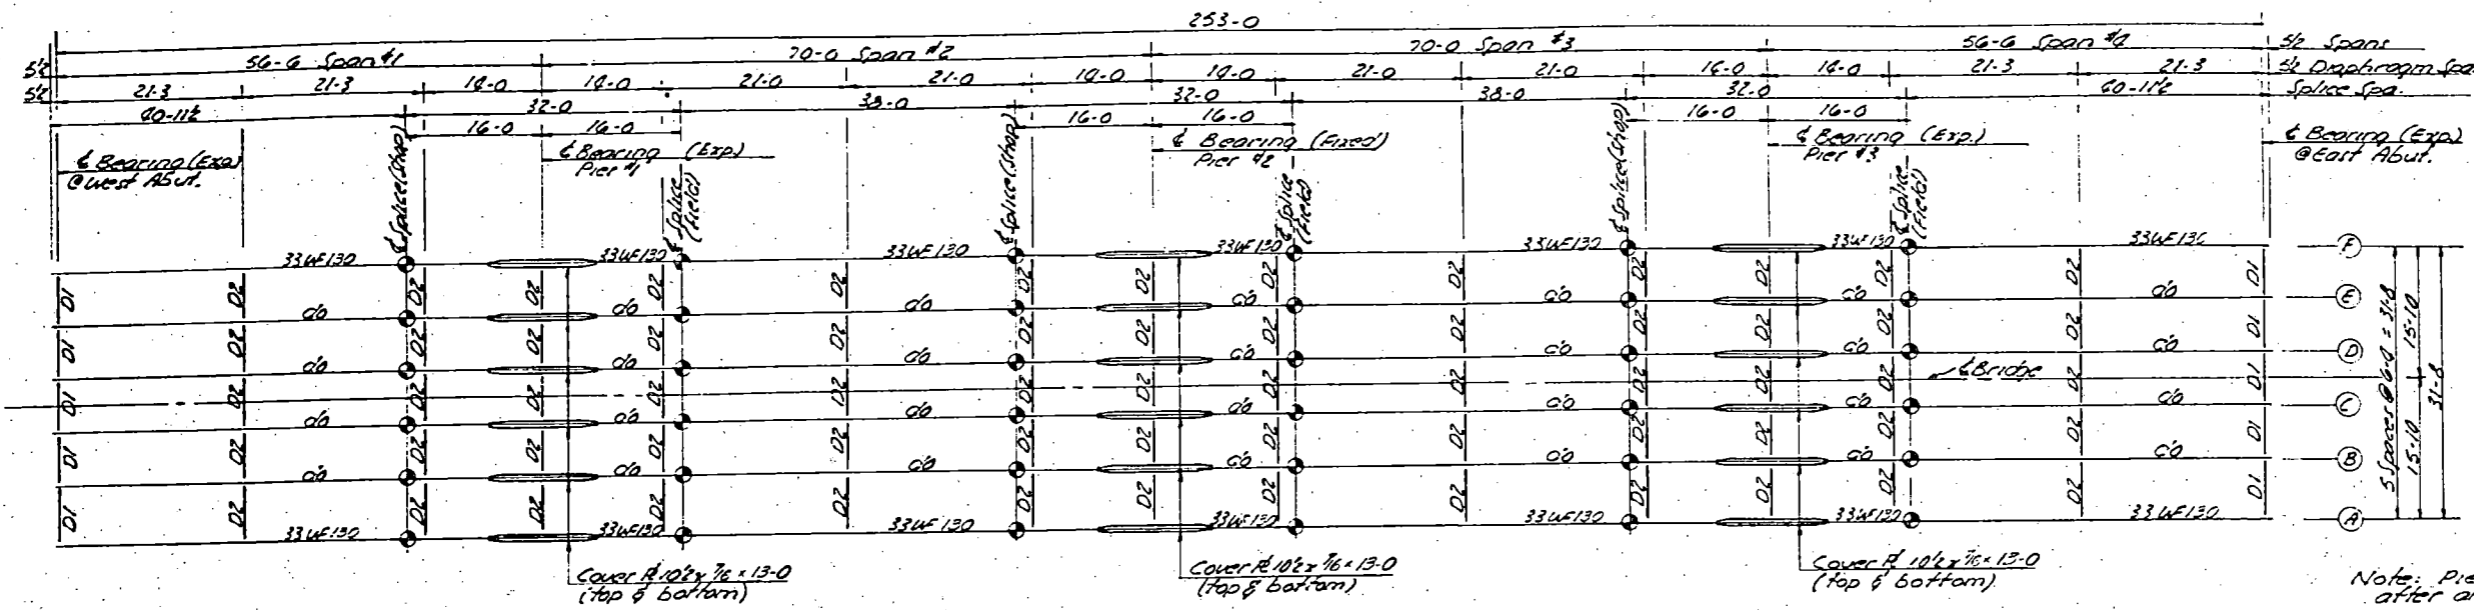 253-0
56-6 Span #1 70-0 Span #2 70-0 Span #3 56-6 Span #4 5½ Spans
5½ 21-3 21-3 14-0 14-0 21-0 21-0 14-0 14-0 21-0 21-0 14-0 14-0 21-3 21-3 5½ Diaphragm Spa.
5½ 40-11½ 32-0 38-0 32-0 38-0 32-0 40-11½ Splice Spa.
16-0 16-0 16-0 16-0 16-0 16-0
℄ Bearing (Exp.)
@ West Abut.
℄ Splice (Shop)
℄ Bearing (Exp.)
Pier #1
℄ Splice
(Field)
℄ Splice (Shop)
℄ Bearing (Fixed)
Pier #2
℄ Splice
(Field)
℄ Splice (Shop)
℄ Bearing (Exp.)
Pier #3
℄ Splice
(Field)
℄ Bearing (Exp.)
@ East Abut.
33WF130 33WF130 33WF130 33WF130 33WF130 33WF130 33WF130 F
D1 D2 D2 D2 D2 D2 D2 D2 D2 D2 D2 D2 D2 D2 D1
do do do do do do do E
D1 D2 D2 D2 D2 D2 D2 D2 D2 D2 D2 D2 D2 D2 D1
do do do do do do do D
D1 D2 D2 D2 D2 D2 D2 D2 D2 D2 D2 D2 D2 D2 D1
℄ Bridge
do do do do do do do C
D1 D2 D2 D2 D2 D2 D2 D2 D2 D2 D2 D2 D2 D2 D1
do do do do do do do B
D1 D2 D2 D2 D2 D2 D2 D2 D2 D2 D2 D2 D2 D2 D1
33WF130 33WF130 33WF130 33WF130 33WF130 33WF130 33WF130 A
5 Spaces @ 6-4 = 31-8
15-10 15-10
31-8
Cover ℞ 10½ x 7/16 x 13-0
(top & bottom)
Cover ℞ 10½ x 7/16 x 13-0
(top & bottom)
Cover ℞ 10½ x 7/16 x 13-0
(top & bottom)
Note: Pie
after an